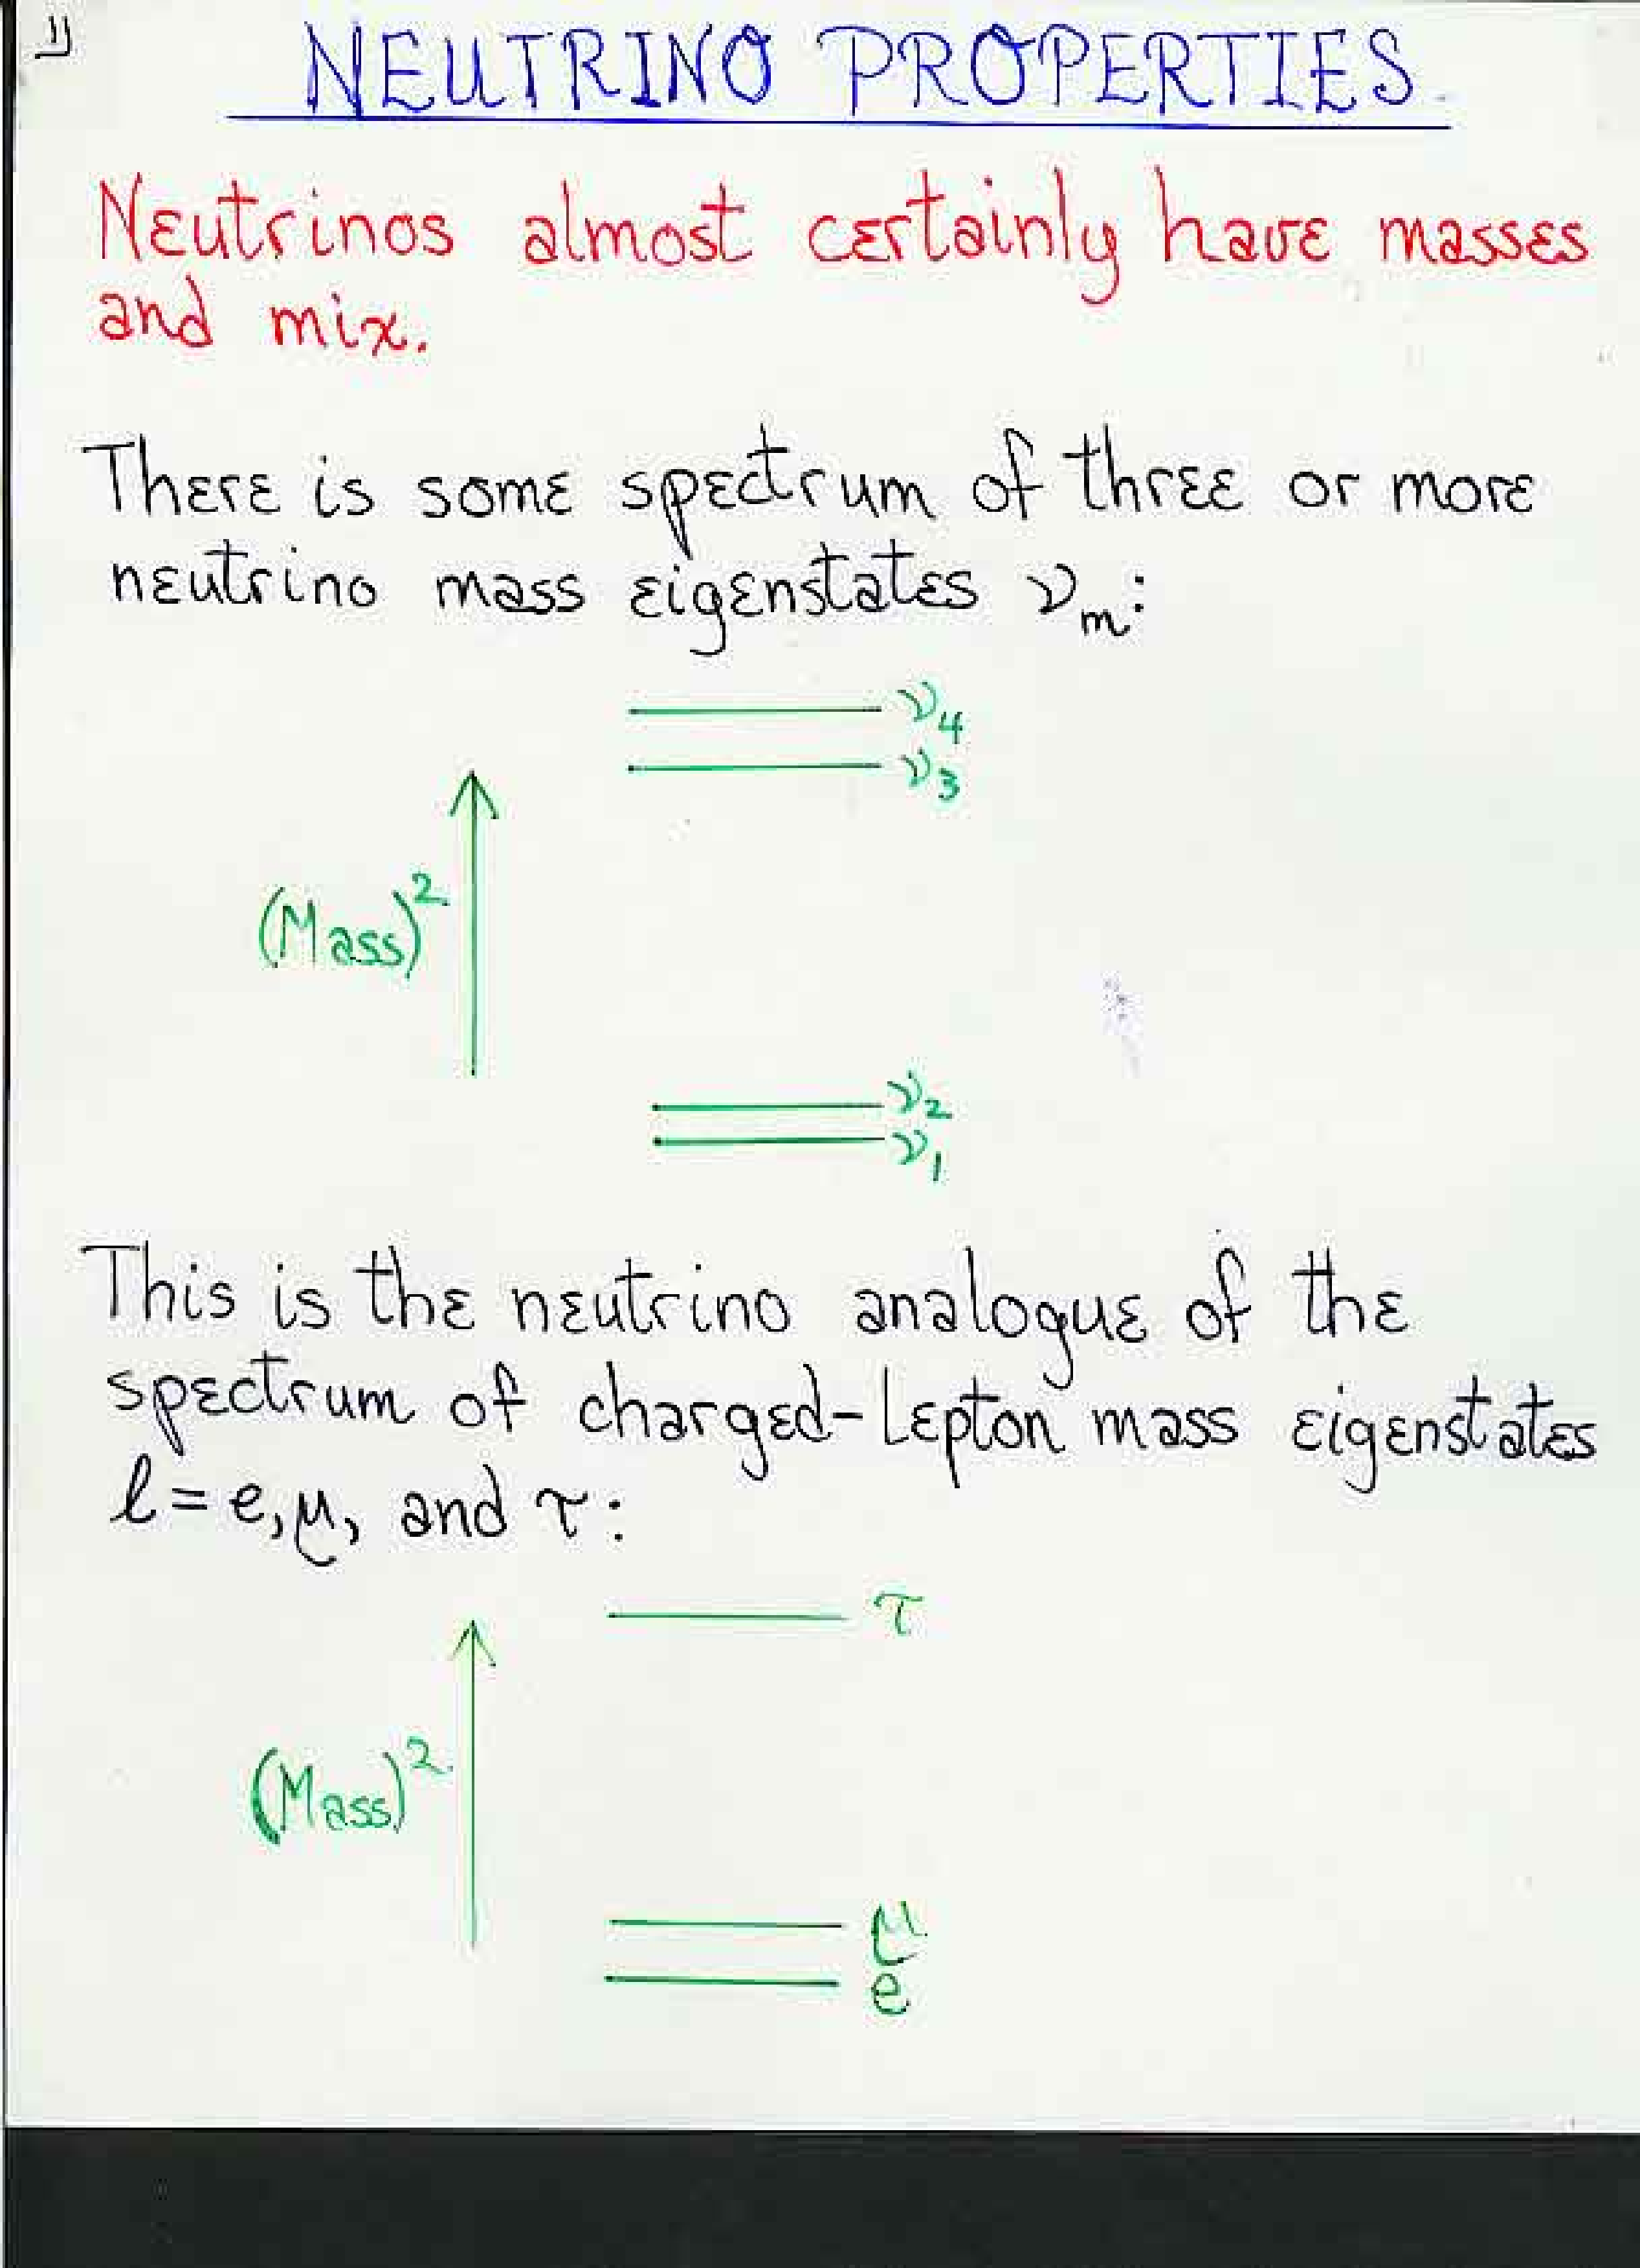 1)
NEUTRINO PROPERTIES
Neutrinos almost certainly have masses
and mix.
There is some spectrum of three or more
neutrino mass eigenstates ν_m:
ν_4
ν_3
(Mass)^2
ν_2
ν_1
This is the neutrino analogue of the
spectrum of charged-lepton mass eigenstates
ℓ = e, μ, and τ:
τ
(Mass)^2
μ
e